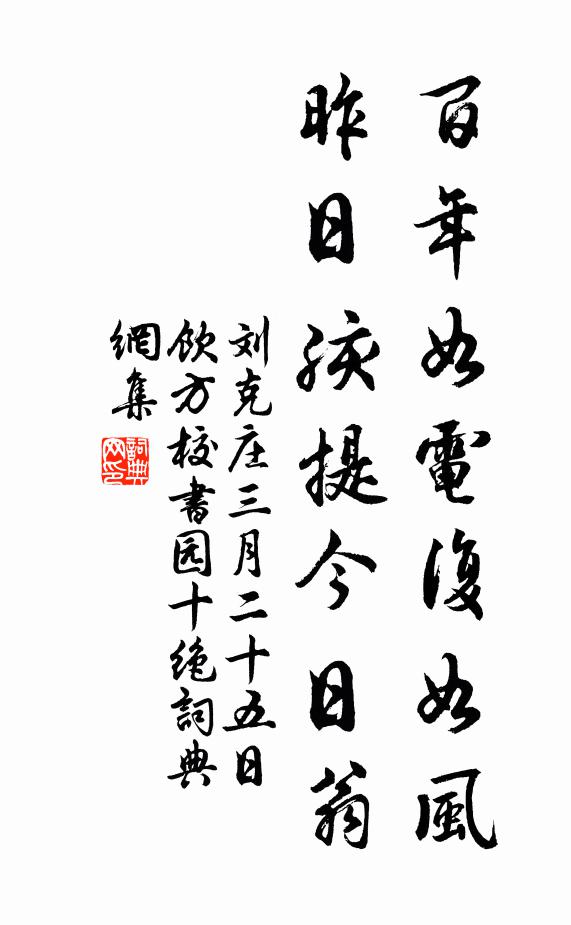 百年如電復如風
昨日孩提今日翁
刘克庄三月二十五日
飲方校書园十绝詞典
網集
詞典
网印